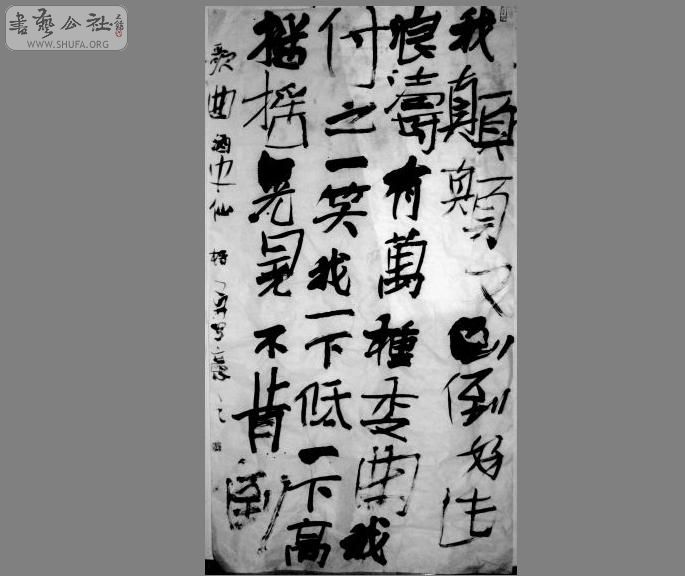 書藝公社
WWW.SHUFA.ORG
我顛顛又倒倒好比
浪濤有萬種委曲我
付之一笑我一下低一下高
搖搖晃晃不肯倒
歌曲酒中仙